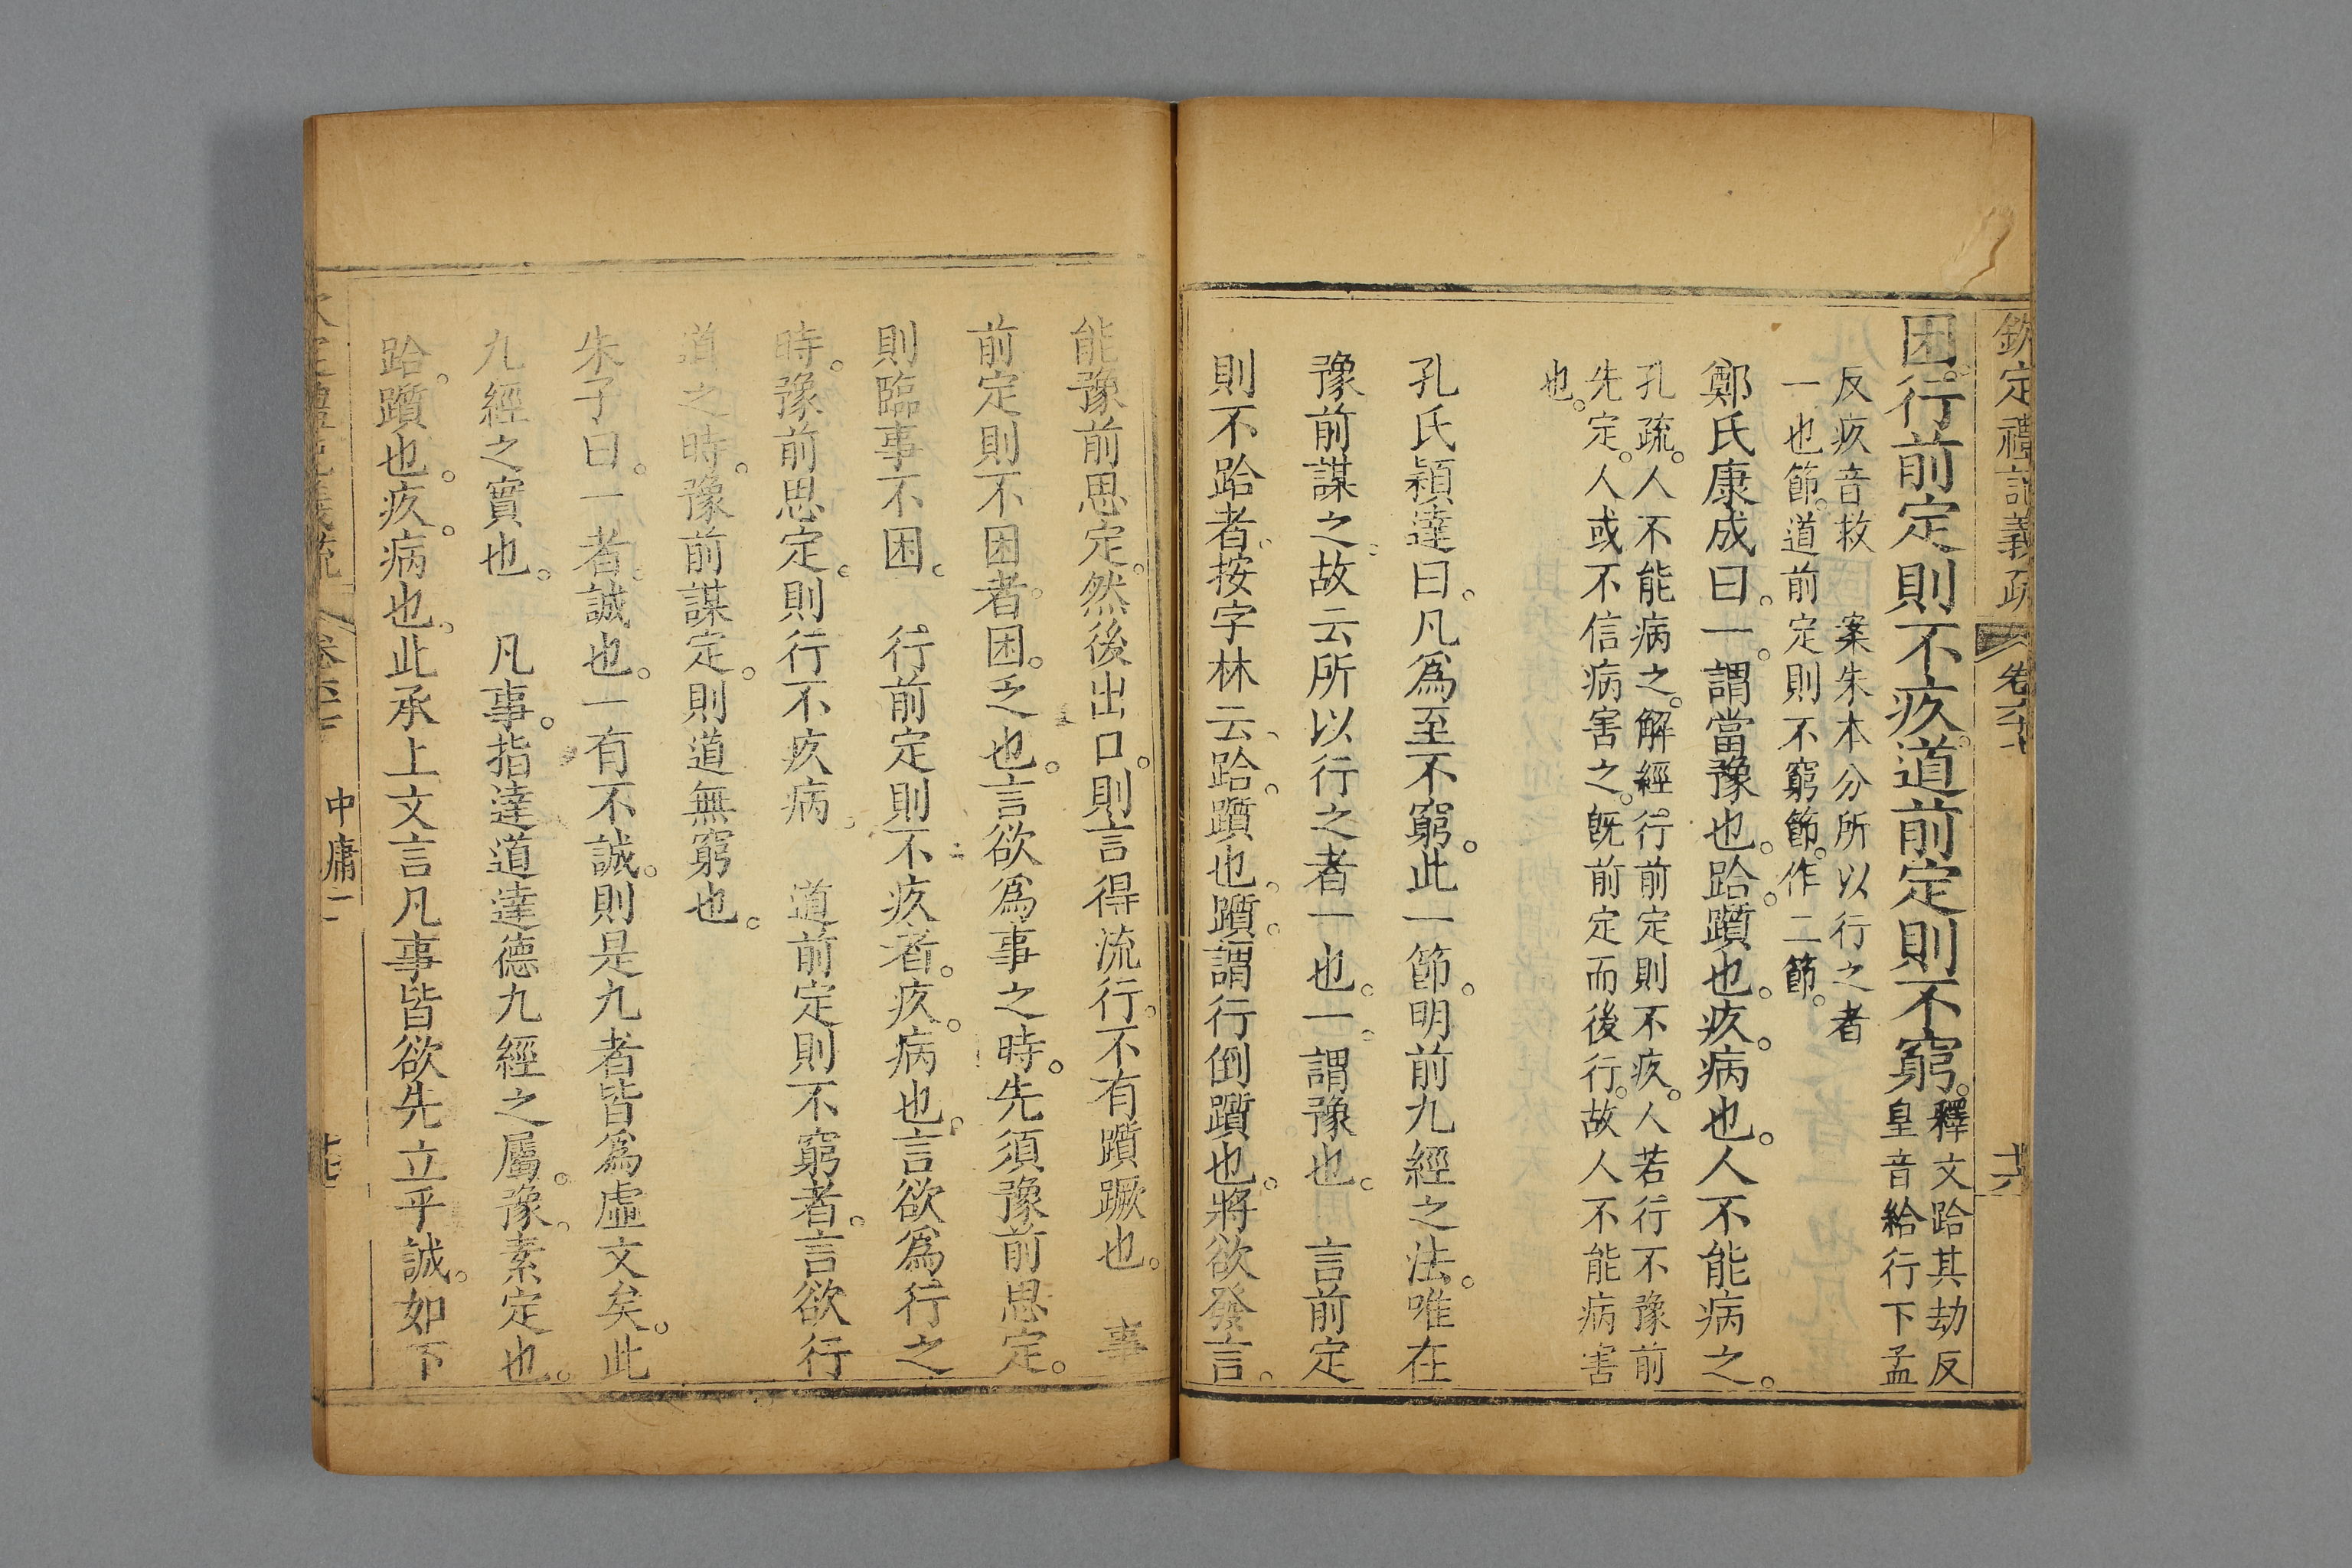 欽定禮記義疏 卷六十七 十六
困。行前定則不疚。道前定則不窮。
釋文跲其劫反
皇音給行下孟
反疚音救 案朱本分所以行之者
一也節。道前定則不窮節。作二節。
鄭氏康成曰。一。謂當豫也。跲。躓也。疚。病也。人不能病之。
孔疏。人不能病之。解經。行前定則不疚。人若行不豫前
先定。人或不信病害之。旣前定而後行。故人不能病害
也。
孔氏穎達曰。凡爲至不窮。此一節。明前九經之法。唯在
豫前謀之。故云所以行之者一也。一。謂豫也。 言前定
則不跲者。按字林云。跲。躓也。躓。謂行倒躓也。將欲發言。
能豫前思定。然後出口。則言得流行。不有躓蹶也。 事
前定則不困者。困。乏也。言欲爲事之時。先須豫前思定。
則臨事不困。 行前定則不疚者。疚。病也。言欲爲行之
時。豫前思定。則行不疚病。 道前定則不窮者。言欲行
道之時。豫前謀定。則道無窮也。
朱子曰。一者。誠也。一有不誠。則是九者皆爲虛文矣。此
九經之實也。 凡事。指達道達德九經之屬。豫。素定也。
跲。躓也。疚。病也。此承上文言凡事皆欲先立乎誠。如下
中庸二